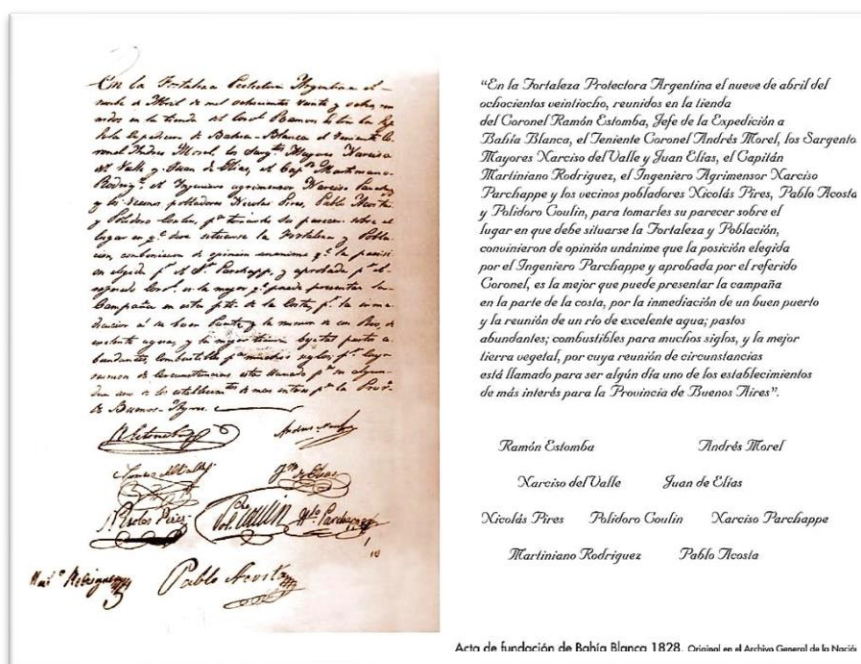 En la Fortaleza Protectora Argentina el
de Abril de mil ochocientos veinte y ocho, reu
nidos en la tienda del Ramon
de la de Bahia-Blanca el Teniente Co-
ronel Andres Morel, los Mayores Narciso
del Valle y Juan de Elias, el Capn Martiniano
Rodrigz. el Ingeniero agrimensor Narciso
y los vecinos pobladores Nicolas Pires, Pablo Acosta
y Polidoro Coulin, pa. su parecer sobre el
lugar en qe. debe situarse la Fortaleza y Pobla-
cion, combinieron de opinion unanime qe. la
elegida pr. el Sr. Parchapp, y aprobada pr. el
es la mejor qe. puede presentar la
Campaña en esta pte. de la Costa, pr. la
de un buen Puerto y la reunion de un Rio de
y la mejor
bundantes, combustible pa. muchos siglos,
de Circunstancias esta llamado pa. ser
dia uno de los de mas interes pa. la Prov.
de Buenos-Ayres.
Nicolas Pires Pol. Coulin No. Parchappe
Pablo Acosta
“En la Fortaleza Protectora Argentina el nueve de abril del
ochocientos veintiocho, reunidos en la tienda
del Coronel Ramón Estomba, Jefe de la Expedición a
Bahía Blanca, el Teniente Coronel Andrés Morel, los Sargento
Mayores Narciso del Valle y Juan Elías, el Capitán
Martiniano Rodriguez, el Ingeniero Agrimensor Narciso
Parchappe y los vecinos pobladores Nicolás Pires, Pablo Acosta
y Polidoro Coulin, para tomarles su parecer sobre el
lugar en que debe situarse la Fortaleza y Población,
convinieron de opinión unánime que la posición elegida
por el Ingeniero Parchappe y aprobada por el referido
Coronel, es la mejor que puede presentar la campaña
en la parte de la costa, por la inmediación de un buen puerto
y la reunión de un río de excelente agua; pastos
abundantes; combustibles para muchos siglos, y la mejor
tierra vegetal, por cuya reunión de circunstancias
está llamado para ser algún día uno de los establecimientos
de más interés para la Provincia de Buenos Aires”.
Ramón Estomba Andrés Morel
Narciso del Valle Juan de Elías
Nicolás Pires Polidoro Coulin Narciso Parchappe
Martiniano Rodriguez Pablo Acosta
Acta de fundación de Bahía Blanca 1828. Original en el Archivo General de la Nación